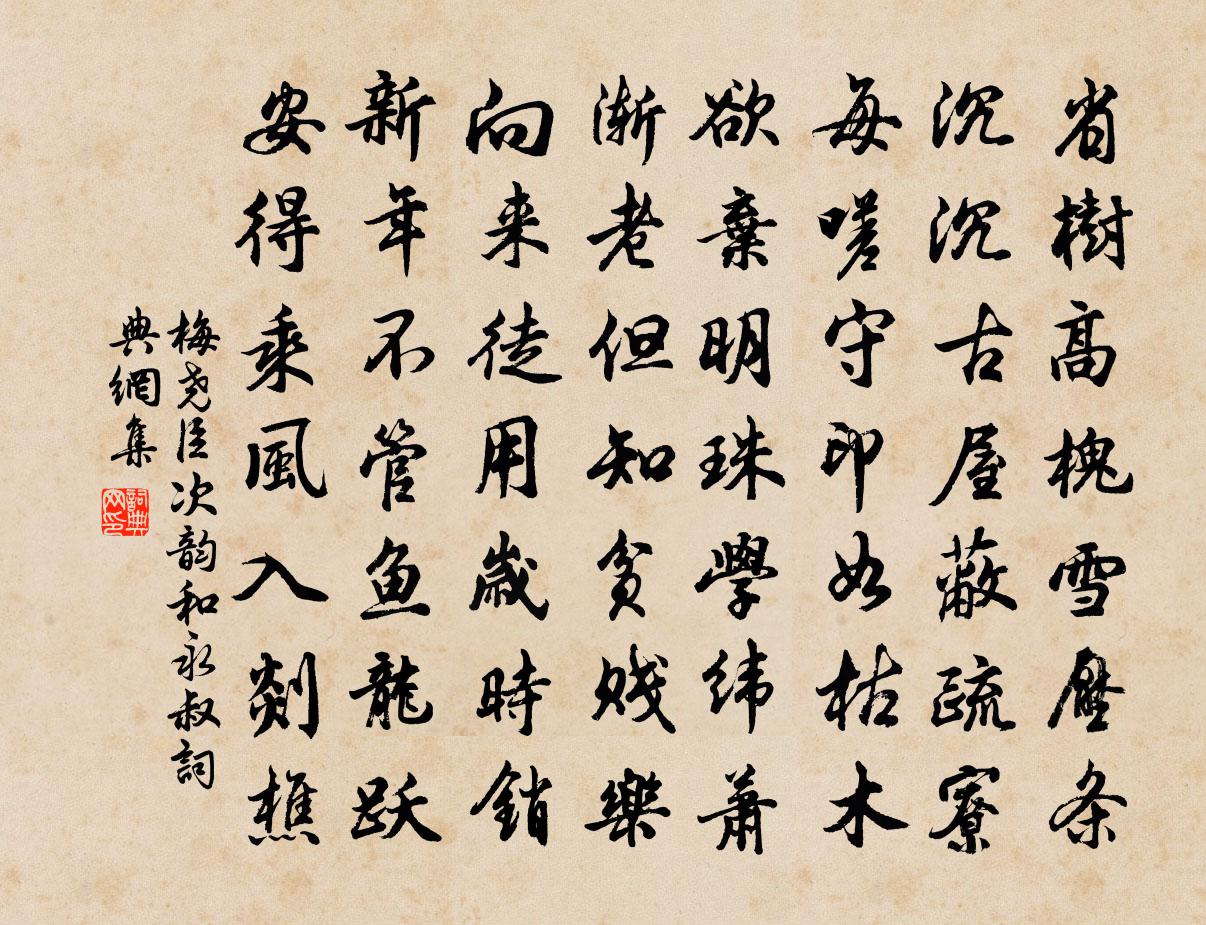 省樹高槐雪壓条
沉沉古屋蔽疏寮
每嗟守印如枯木
欲棄明珠學緯蕭
漸老但知貧賤樂
向来徒用歲時銷
新年不管鱼龍跃
安得乘風入剡樵
梅尧臣次韵和永叔詞
典網集
詞典网印